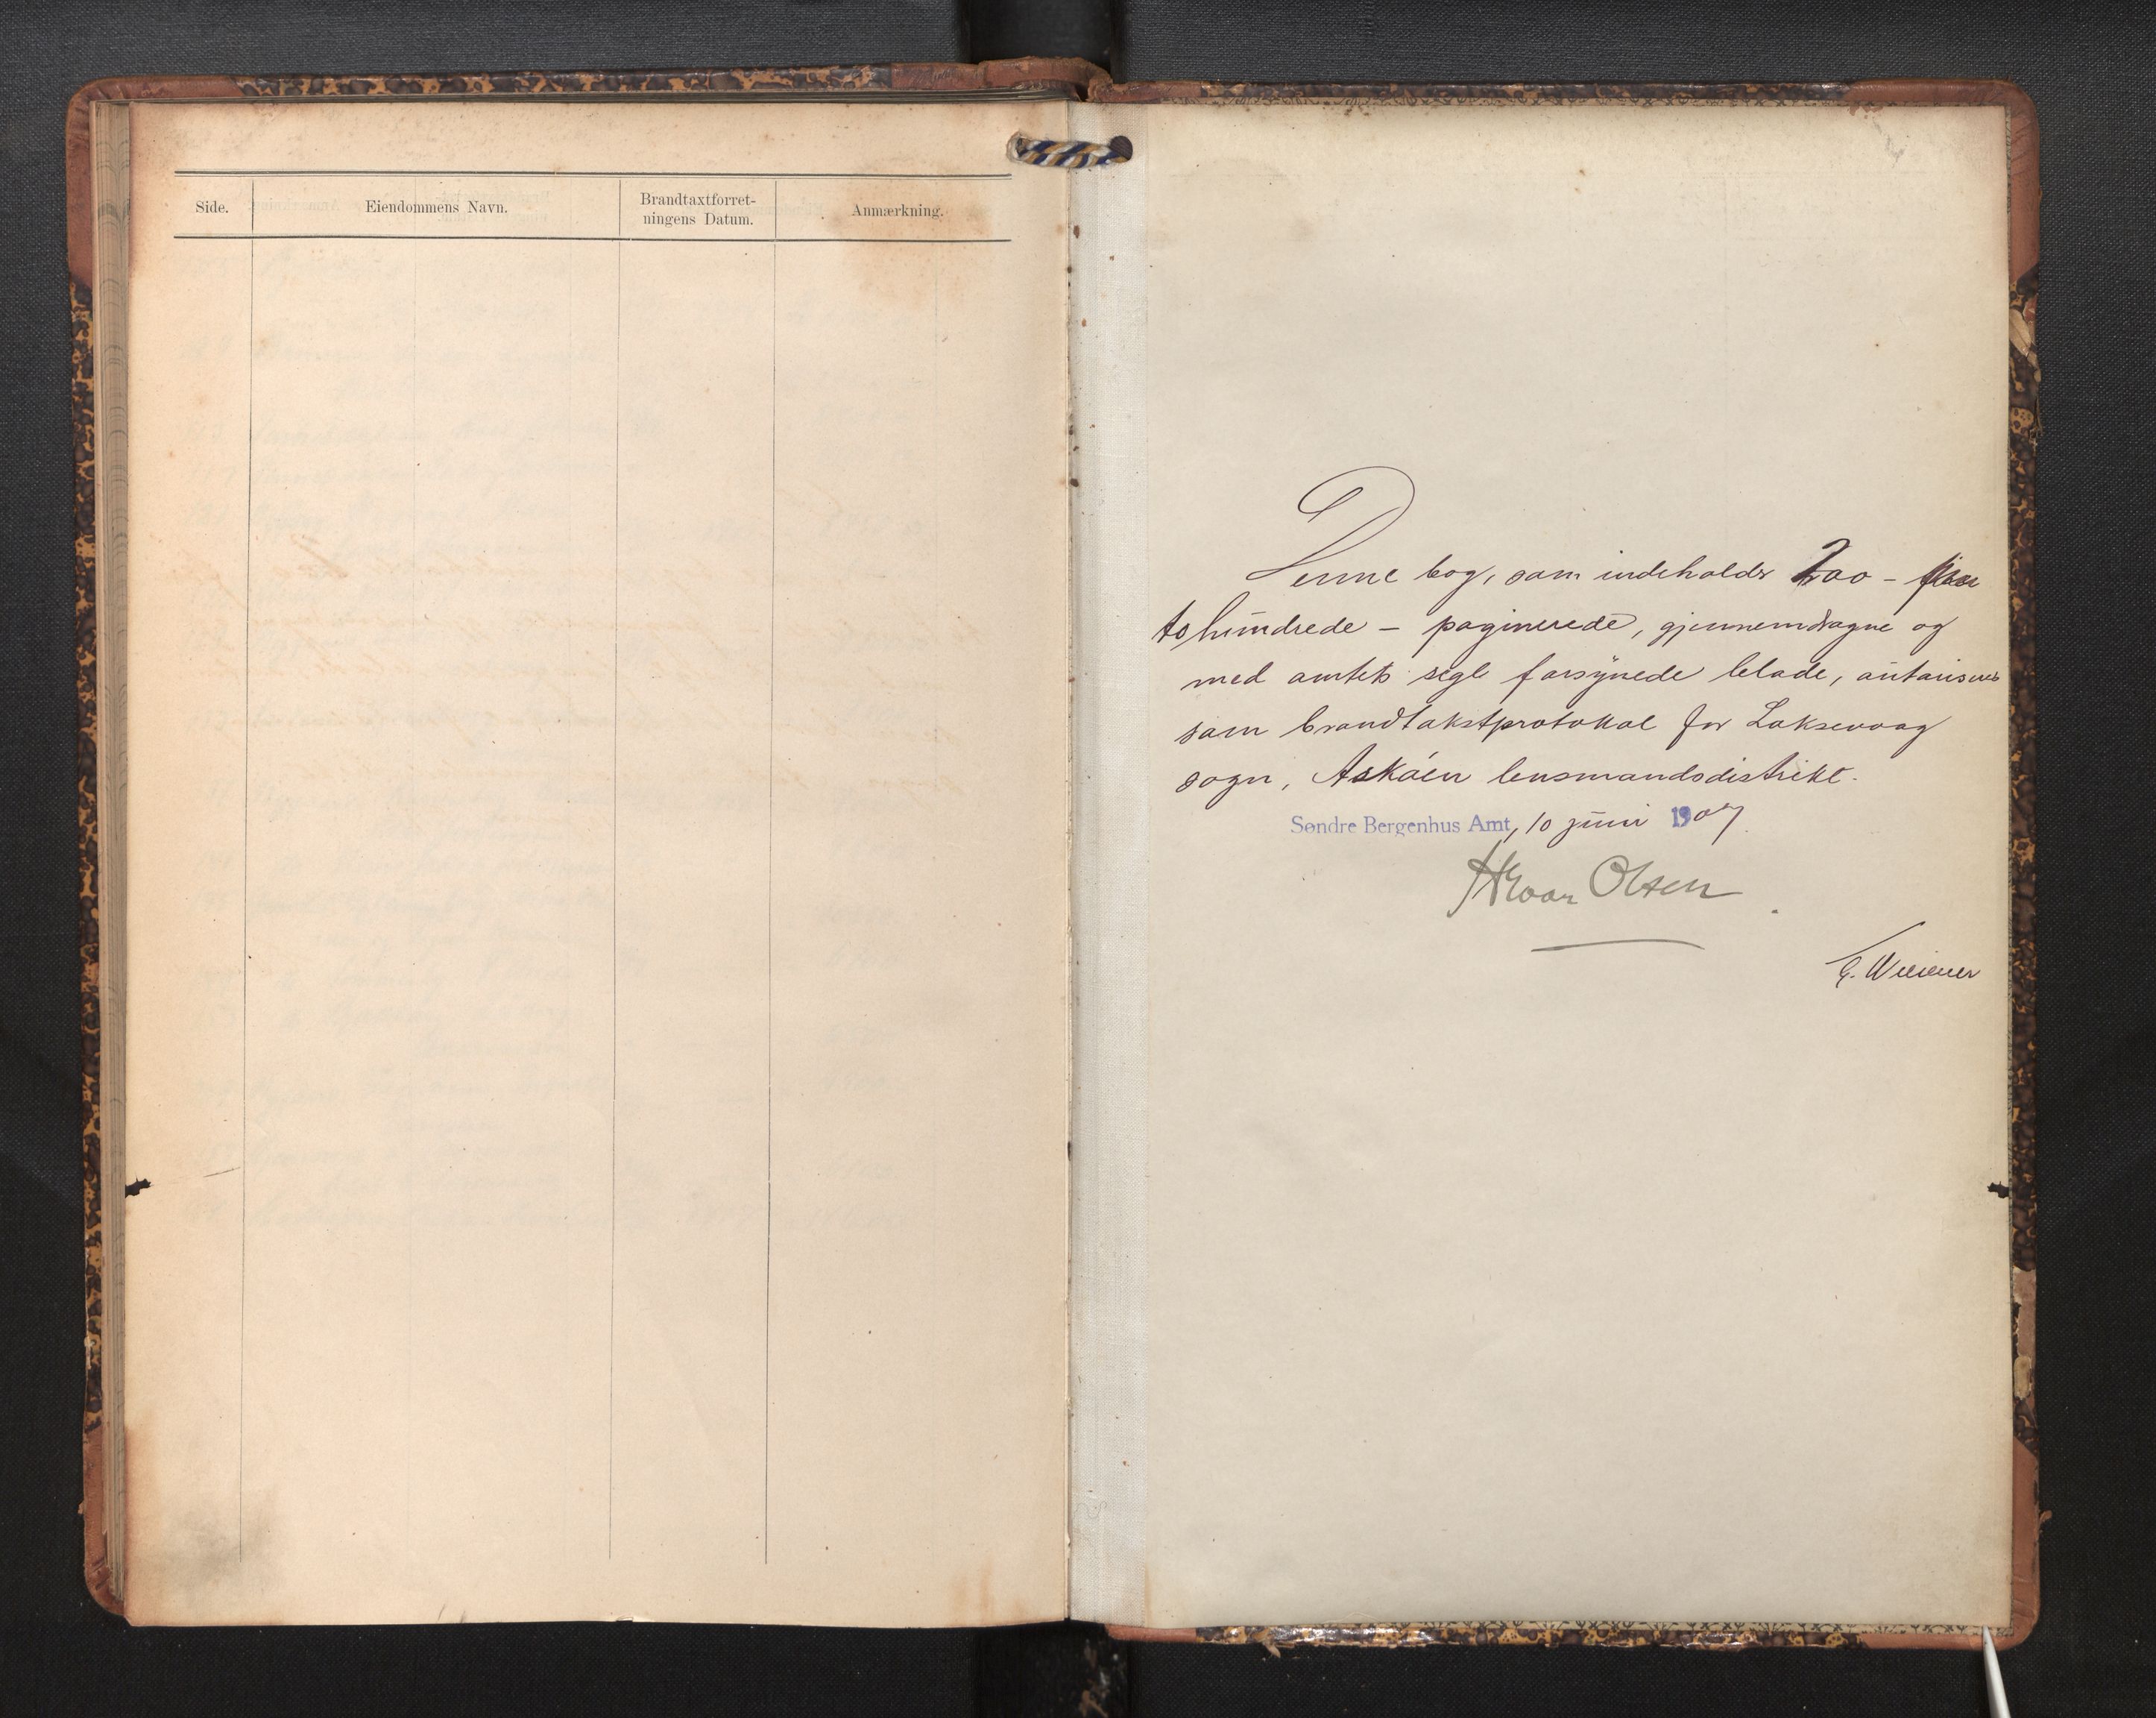 Side.
Eiendommens Navn.
Brandtaxtforret-
ningens Datum.
Anmærkning.
Denne bog, som indeholder 200 -
to hundrede - paginerede, gjennemdragne og
med amtets segl forsynede blade, autoriseres
som brandtakstprotokol for Laksevaag
sogn, Askøen lensmandsdistrikt.
Søndre Bergenhus Amt, 10 juni 1907
Hroar Olsen